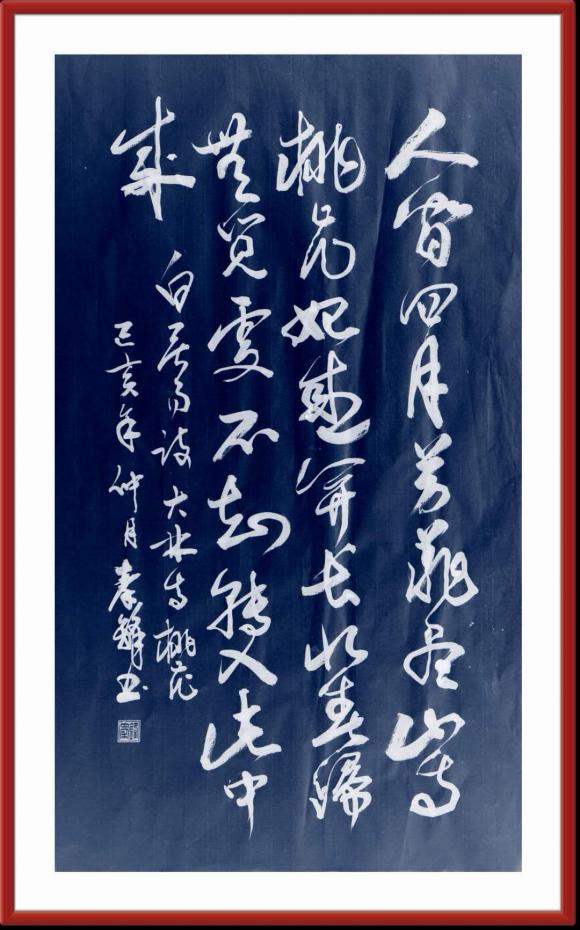 人間四月芳菲尽山寺
桃花始盛開長恨春歸
無覓處不知轉入此中
來
白居易诗大林寺桃花
己亥年仲月秦鋒书